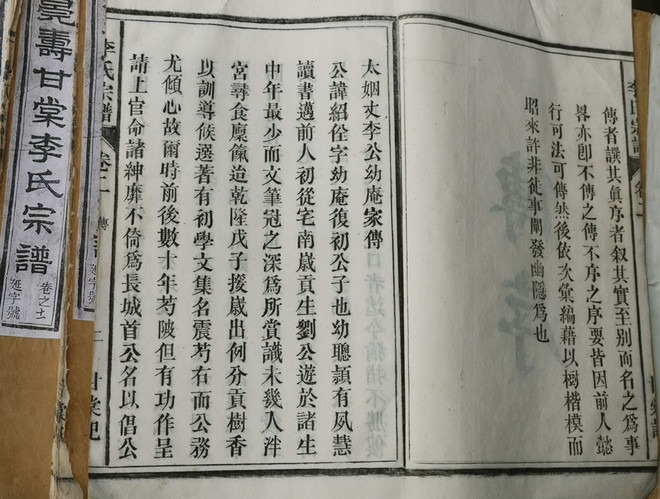 傳者譔其眞序者叙其實至别而名之爲事
畧亦卽不傳之傳不序之序要皆因前人懿
行可法可傳然後依次彙編藉以樹楷模而
昭來許非徒事闡發幽隱爲也
太姻丈李公幼庵家傳
公諱紹佺字幼庵復初公子也幼聰頴有夙慧
讀書邁前人初從宅南歲貢生劉公遊於諸生
中年最少而文筆冠之深爲所賞識未幾入泮
宮尋食廩餼迨乾隆戊子援歲出例分貢樹香
以訓導候選著有初學文集名震芍右而公務
尤傾心故爾時前後數十年芍陂但有功作呈
請上官命諸紳靡不倚爲長城首公名以倡公
李氏宗譜
卷十一
傳
甘棠記
壽甘棠李氏宗譜
卷之十一
延字號